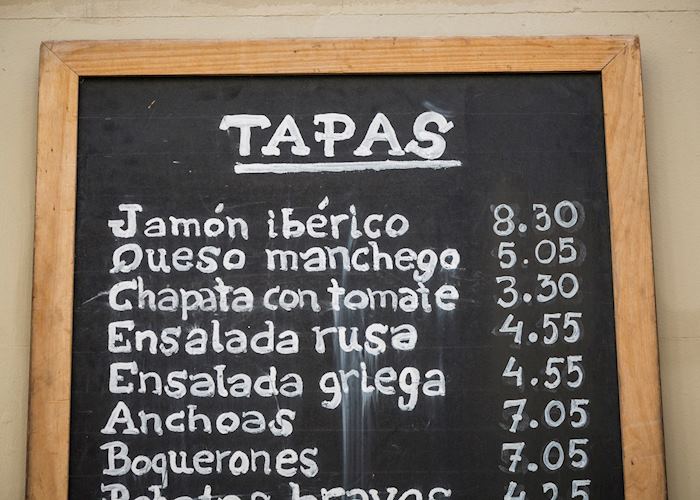 TAPAS
Jamón ibérico 8.30
Queso manchego 5.05
Chapata con tomate 3.30
Ensalada rusa 4.55
Ensalada griega 4.55
Anchoas 7.05
Boquerones 7.05
bravas 4.25